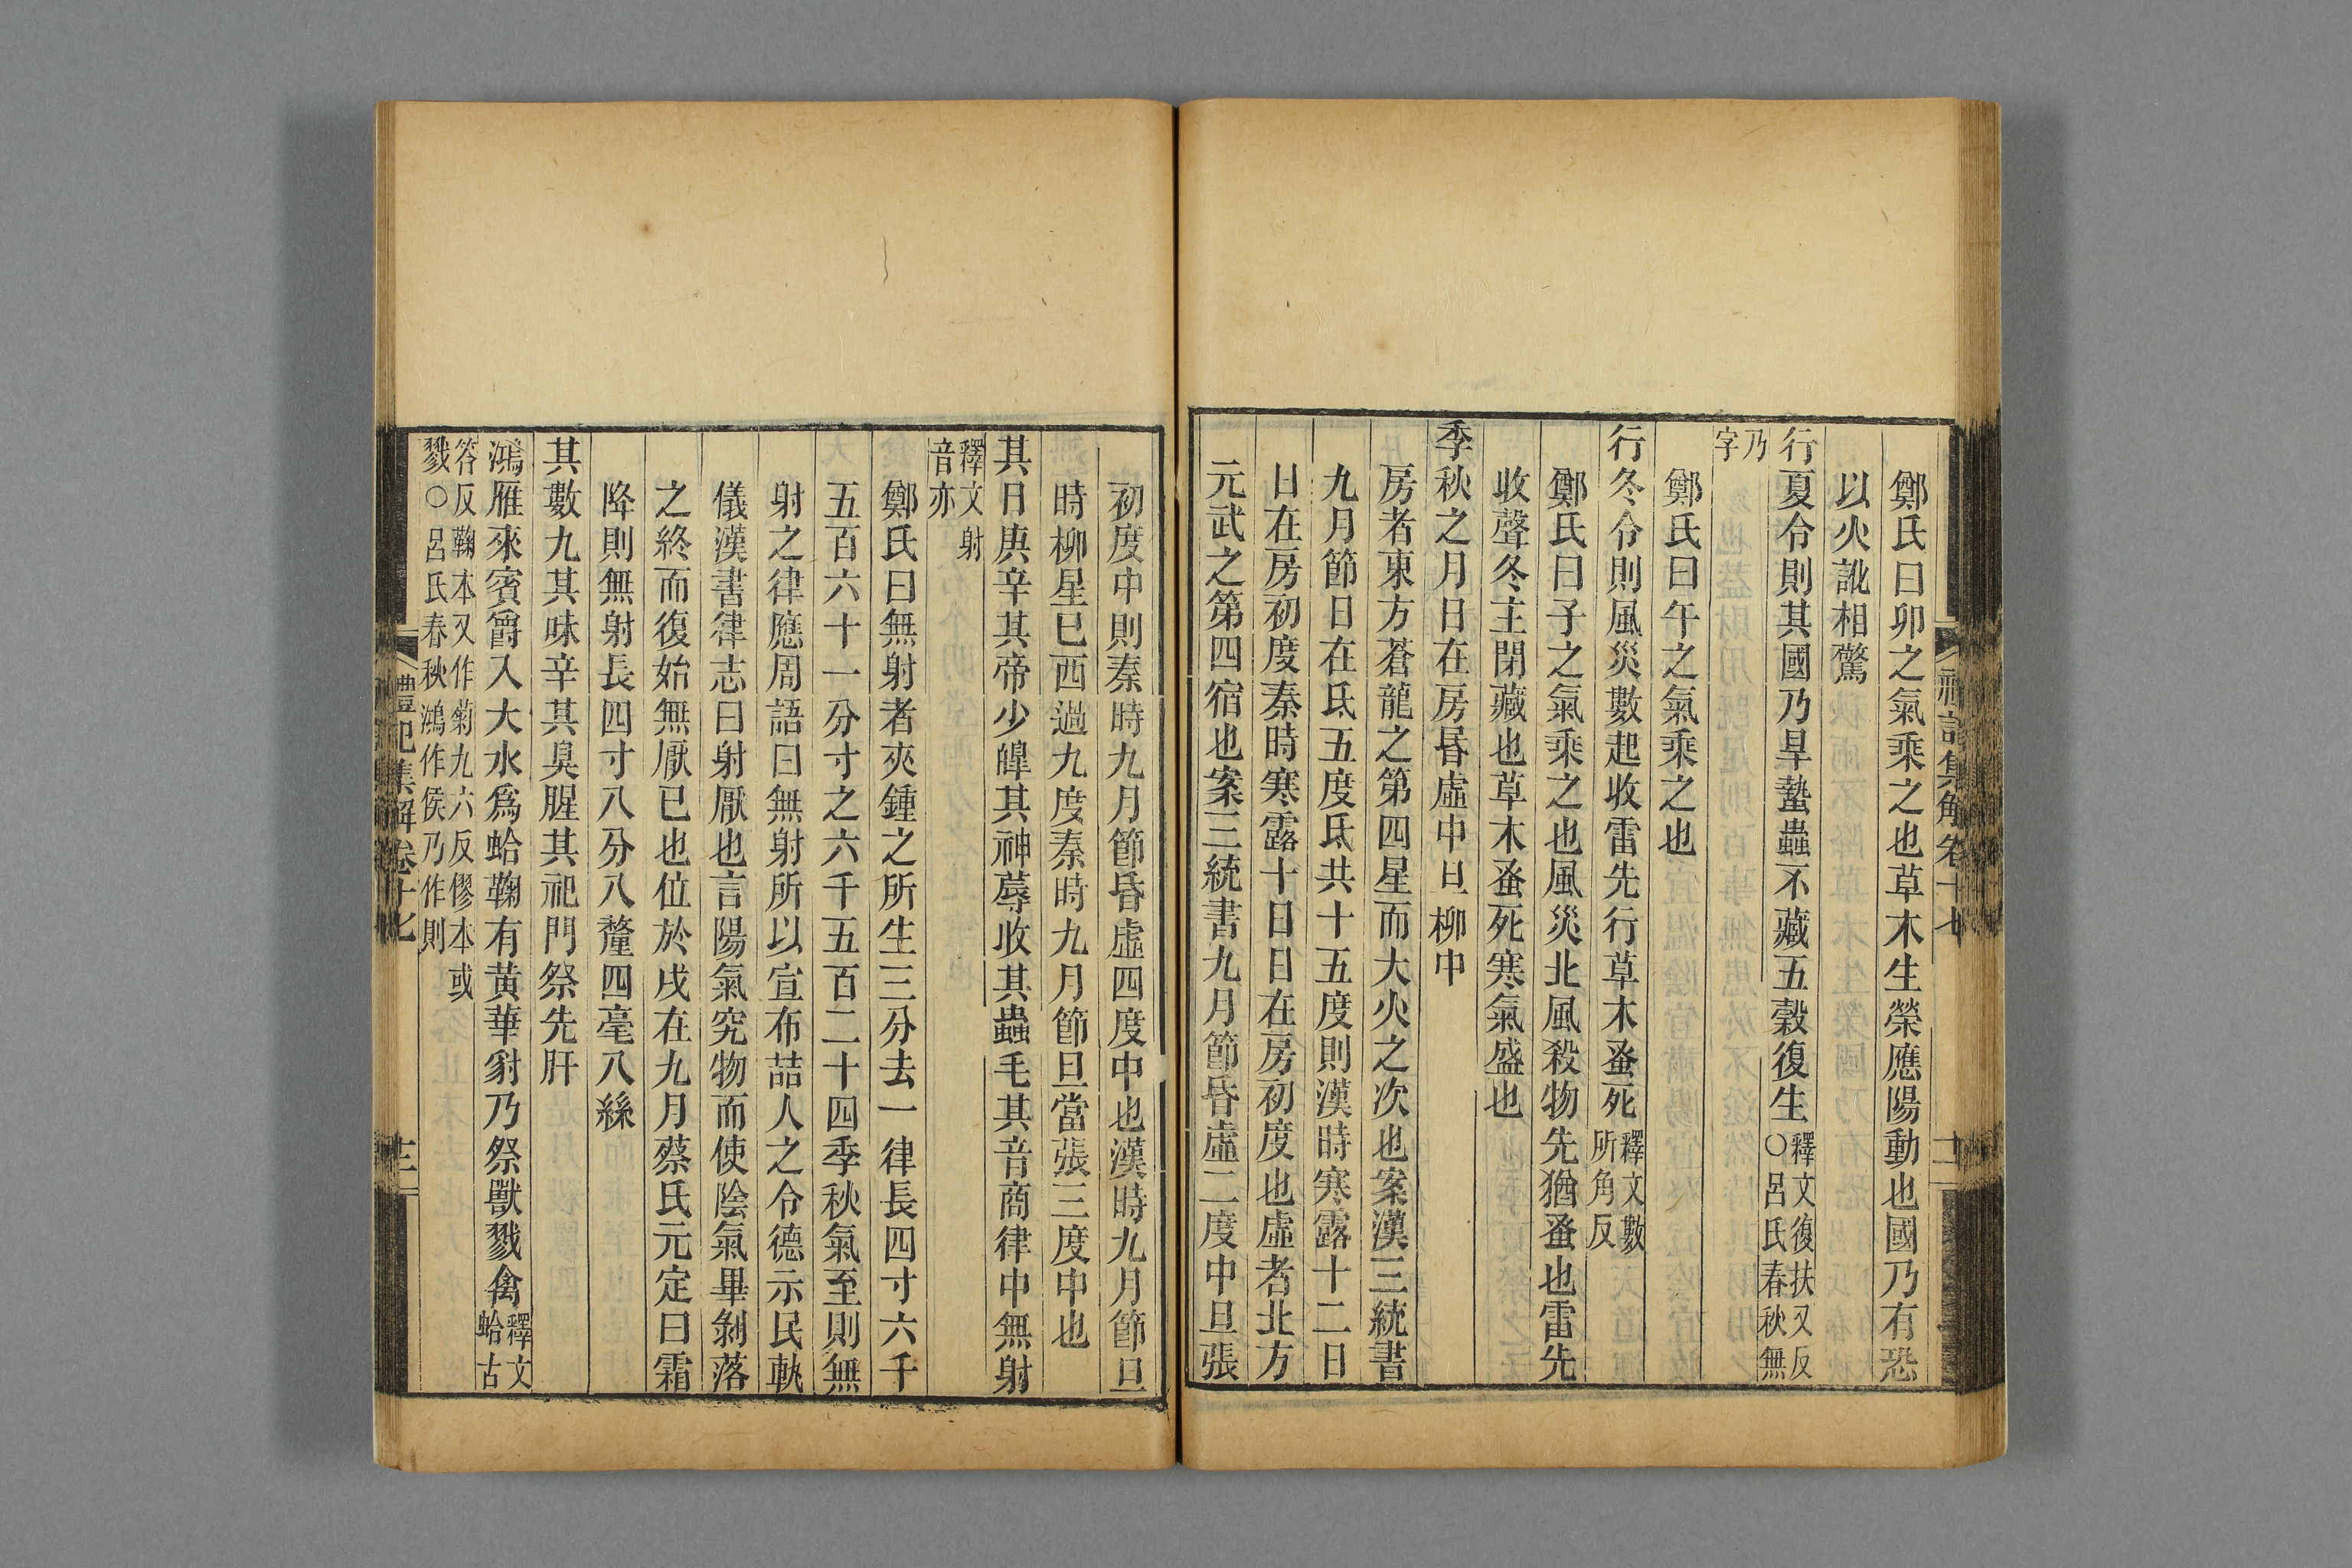 鄭氏曰卯之氣乘之也草木生榮應陽動也國乃有恐
以火訛相驚
行夏令則其國乃旱蟄蟲不藏五穀復生釋文復扶又反○呂氏春秋無
乃字
鄭氏曰午之氣乘之也
行冬令則風災數起收雷先行草木蚤死釋文數所角反
鄭氏曰子之氣乘之也風災北風殺物先猶蚤也雷先
收聲冬主閉藏也草木蚤死寒氣盛也
季秋之月日在房昬虛中旦柳中
房者東方蒼龍之第四星而大火之次也案漢三統書
九月節日在氐五度氐共十五度則漢時寒露十二日
日在房初度秦時寒露十日日在房初度也虛者北方
元武之第四宿也案三統書九月節昏虛二度中旦張
初度中則秦時九月節昏虛四度中也漢時九月節旦
時柳星已西過九度秦時九月節旦當張三度中也
其日庚辛其帝少皞其神蓐收其蟲毛其音商律中無射
釋文射音亦
鄭氏曰無射者夾鍾之所生三分去一律長四寸六千
五百六十一分寸之六千五百二十四季秋氣至則無
射之律應周語曰無射所以宣布喆人之令德示民軌
儀漢書律志曰射厭也言陽氣究物而使陰氣畢剝落
之終而復始無厭已也位於戌在九月蔡氏元定曰霜
降則無射長四寸八分八釐四毫八絲
其數九其味辛其臭腥其祀門祭先肝
鴻雁來賓爵入大水爲蛤鞠有黄華豺乃祭獸戮禽釋文蛤古
答反鞠本又作菊九六反僇本或戮○呂氏春秋鴻作候乃作則
禮記集解卷十七
十二
禮記集解卷十七
十三